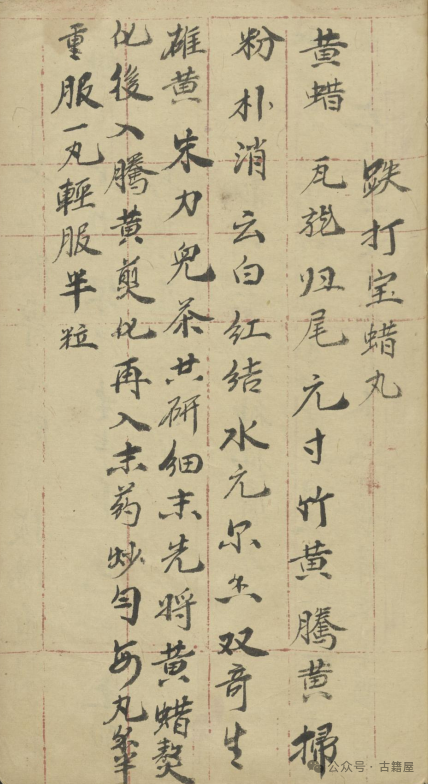 跌打宝蜡丸
黄蜡 瓦归尾元寸竹黄騰黄掃
粉朴消云白红结水元双奇生
雄黄朱力兒茶共研细末先将黄蜡熬
化後入騰黄煎化再入末药炒匀每丸半
重服一丸輕服半粒
公众号·古籍屋